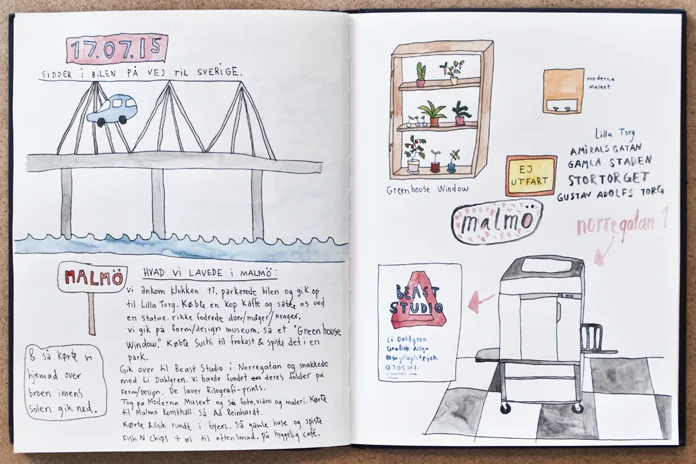 17.07.15
SIDDER I BILEN PÅ VEJ TIL SVERIGE.
MALMÖ
HVAD VI LAVEDE I MALMÖ:
Vi ankom klokken 11, parkerede bilen og gik op
til Lilla Torg. Købte en kop kaffe og satte os ved
en statue. Rikke fodrede duer/måger/krager.
Vi gik på Form/design museum, så et "Greenhouse
Window." Købte Sushi til frokost & spiste det i en
park.
Gik over til Beast Studio i Norregatan og snakkede
med Li Dahlgren. Vi havde fundet deres folder på
Form/Design. De laver Risografi-prints.
Tog på Moderna Museet og så foto, video og maleri. Kørte
til Malmö Konsthall. Så Ad Reinhardt.
Kørte & Gik rundt i byen. Så gamle huse og spiste
Fish N Chips + øl til aftensmad, på hyggelig café.
& så kørte vi
hjemad over
broen imens
solen gik ned.
Greenhouse Window
moderna
museet
EJ
UTFART
Lilla Torg
AMIRALS GATAN
GAMLA STADEN
STORTORGET
GUSTAV ADOLFS TORG
malmö
norregatan 9
BEAST
STUDIO
Li Dahlgren
Grafisk design